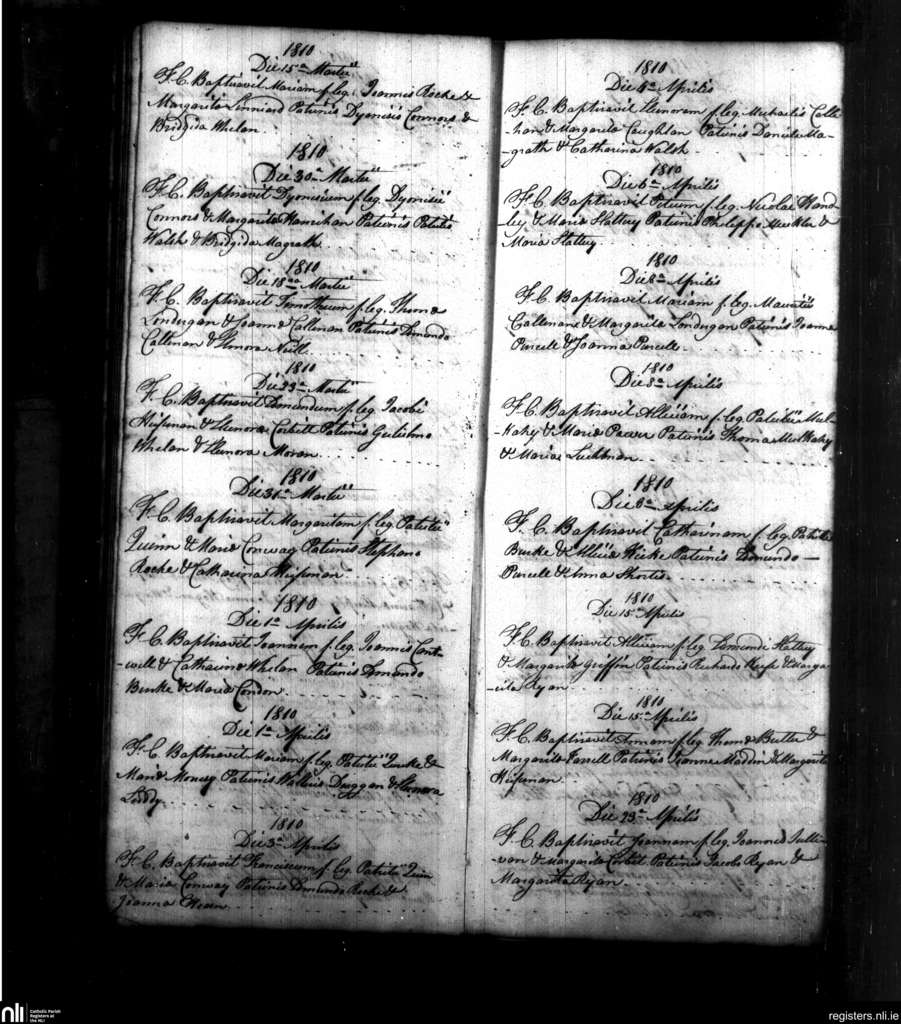 1810
Die 15a Martii
F. C. Baptisavit Mariam f. leg. Joannis Roche &
Margarita Patrinis Dyonisio Connors &
Bridgida Whelan
1810
Die 30a Martii
F. C. Baptisavit Dyonisium f. leg. Dyonisii
Connors & Margarita Hanrihan Patrinis Patritio
Walsh & Bridgida Magrath
1810
Die 18a Martii
F. C. Baptisavit Timotheum f. leg. Thoma
Londergan & Joanna Callenan Patrinis Edmundo
Callenan & Elenora Neill
1810
Die 23a Martii
F. C. Baptisavit Edmundum f. leg. Jacobi
Heffernan & Elenora Corbett Patrinis Gulielmo
Whelan & Elenora Moran
1810
Die 31a Martii
F. C. Baptisavit Margaritam f. leg. Patritii
Quinn & Maria Conway Patrinis Stephano
Roche & Catharina Heffernan
1810
Die 1a Aprilis
F. C. Baptisavit Joannem f. leg. Joannis Cant-
-well & Catharina Whelan Patrinis Edmundo
Burke & Maria Condon
1810
Die 1a Aprilis
F. C. Baptisavit Mariam f. leg. Patritii Burke &
Maria Patrinis Duggan & Elenora
Liddy
1810
Die 3a Aprilis
F. C. Baptisavit Franciscum f. leg. Patritii Quin
& Maria Conway Patrinis Edmundo Roche &
Joanna
1810
Die 4a Aprilis
F. C. Baptisavit Elenoram f. leg. Michaelis Calla-
han & Margarita Coughlan Patrinis Daniele Ma-
grath & Catharina Walsh
1810
Die 6a Aprilis
F. C. Baptisavit Petrum f. leg. Nicolai Hand-
-ley & Maria Slattery Patrinis Philippo &
Maria Slattery
1810
Die 8a Aprilis
F. C. Baptisavit Mariam f. leg. Mauritii
Callenan & Margarita Londergan Patrinis Joanne
Purcell & Joanna Purcell
1810
Die 8a Aprilis
F. C. Baptisavit Alliciam f. leg. Patritii Mul-
-kahy & Maria Power Patrinis Thoma Mulkahy
& Maria
1810
Die 8a Aprilis
F. C. Baptisavit Catharinam f. leg. Patritii
Burke & Allicia Patrinis Edmundo —
Purcell & Anna Shortis
1810
Die 15a Aprilis
F. C. Baptisavit Alliciam f. leg. Edmundi Slattery
& Margarita Griffin Patrinis Richardo Keefe & Marga-
-rita Ryan
1810
Die 15a Aprilis
F. C. Baptisavit Annam f. leg. Thoma Butler &
Margarita Farrell Patrinis Joanne Madden & Margarita
Heffernan
1810
Die 23a Aprilis
F. C. Baptisavit Joannam f. leg. Joannis Sulli-
van & Margarita Corbett Patrinis Jacobo Ryan &
Margarita Ryan
nli
Catholic Parish
Registers at
the NLI
registers.nli.ie